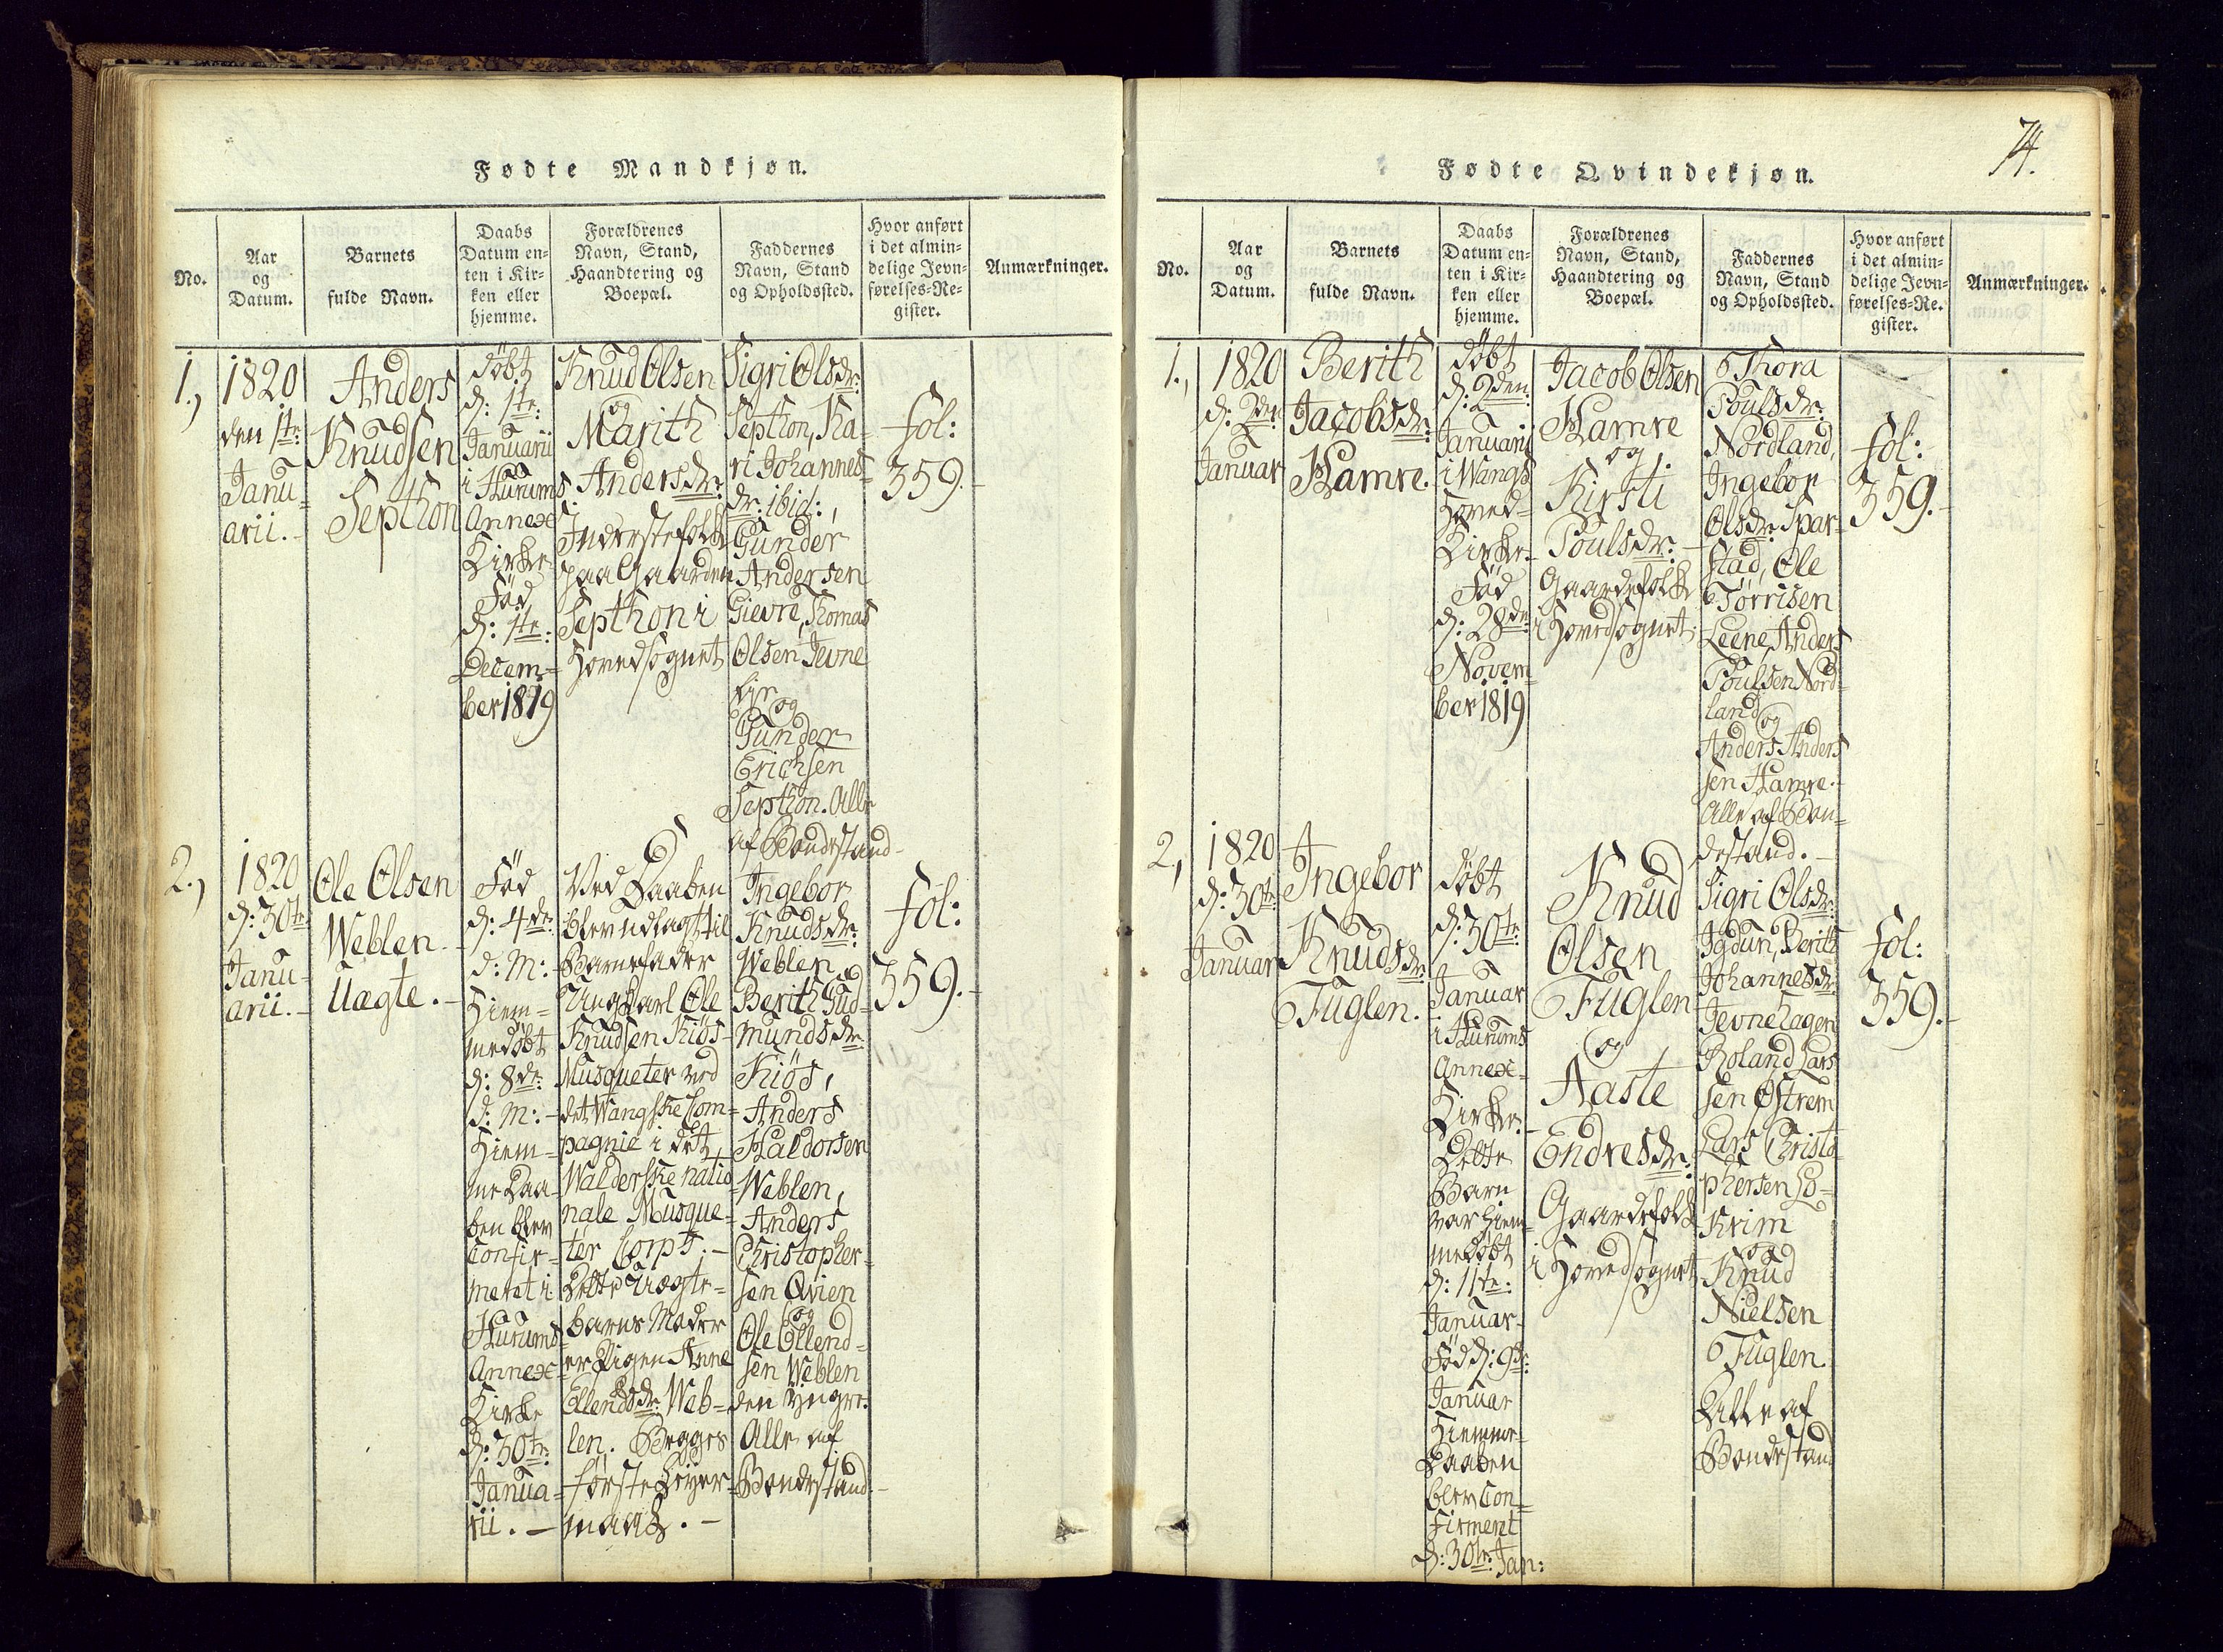 74.
Fødte Mandkjøn.
No.
Aar
og
Datum.
Barnets
fulde Navn.
Daabs
Datum en-
ten i Kir-
ken eller
hjemme.
Forældrenes
Navn, Stand,
Haandtering og
Boepæl.
Faddernes
Navn, Stand
og Opholdssted.
Hvor anført
i det almin-
delige Jevn-
førelses-Re-
gister.
Anmærkninger.
1.,
1820
den 1te
Janu-
arii.-
Anders
Knudsen
Septhon
döbt
d: 1te:
Januarii
i Hurums
Annex
Kirke.
Föd
d: 1te:
Decem-
ber 1819
Knud Olsen
og
Marith
Andersdr:
Inderstefolk
paa Gaarden
Septhon i
Hovedsognet
Sigri Olsdr:
Septhon, Ka-
ri Johannes-
dr: ibid:,
Gunder
Andersen
Gievre, Thomas
Olsen Jevne
og
Gunder
Erichsen
Septhon. Alle
af Bondestand-
fol:
359.-
2.,
1820
d: 30te
Janu-
arii.-
Ole Olsen
Weblen.
Uægte.-
Föd
d: 4de:
d: M:-
Hiem-
medöbt
d: 8de:
d: M:-
Hiem-
me Daa-
ben blev
Confir-
meret i
Hurums
Annex-
Kirke
d: 30te:
Janua-
rii.-
Ved Daaben
blev udlagt til
Barnefader
Ungkarl Ole
Knudsen Kiös-
Musqueter ved
det Wangske Com-
pagnie i det
Walderske natio-
nale Musque-
ter Corps.-
Dette Uægte-
barns Moder
er Pigen Anne
Ellendsdr: Web-
len. Begges
förste Leyer-
maal.-
Ingebor
Knudsdr:
Weblen,
Berith Gud-
mundsdr:
Kiös,
Anders
Haldorsen
Weblen,
Anders
Christopher-
sen Qvien
og
Ole Ellend-
sen Weblen
den Yngre.
Alle af
Bondestand.-
fol:
359.-
Fødte Qvindekjøn.
No.
Aar
og
Datum.
Barnets
fulde Navn.
Daabs
Datum en-
ten i Kir-
ken eller
hjemme.
Forældrenes
Navn, Stand,
Haandtering og
Boepæl.
Faddernes
Navn, Stand
og Opholdssted.
Hvor anført
i det almin-
delige Jevn-
førelses-Re-
gister.
Anmærkninger.
1.,
1820
d: 2den
Januar
Berith
Jacobsdr:
Hamre.
döbt
d: 2den:
Januarii
i Wangs
Hoved-
Kirke.
Föd
d: 28de
Novem-
ber 1819
Jacob Olsen
Hamre
og
Kirsti
Poulsdr:-
Gaardefolk
i Hovedsognet.
Thora
Poulsdr:
Nordland,
Ingebor
Olsdr: Spar-
stad, Ole
Törrisen
Leene, Anders
Poulsen Nord-
land
og
Anders Anders
sen Hamre.-
Alle af Bon-
destand.-
fol:
359.-
2.,
1820
d: 30te:
Januar
Ingebor
Knudsdr:
Fuglen.
döbt
d: 30te:
Januar
i Hurums
Annex-
Kirke.-
Dette
Barn
var hiem-
medöbt
d: 11te:
Januar-
Föd d: 9de:
Januar
Hiemme-
Daaben
blev Con-
firmert
d: 30te: Jan:
Knud
Olsen
Fuglen
og
Aaste
Endresdr:
Gaardefolk
i Hovedsognet
Sigri Olsdr:
Igdun, Berith
Johannesdr:
Jevnehagen
Roland Lars
sen Östrem
Lars Christo-
phersen Lö-
Krim
og
Knud
Nielsen
Fuglen
Alle af
Bondestand
fol:
359.-